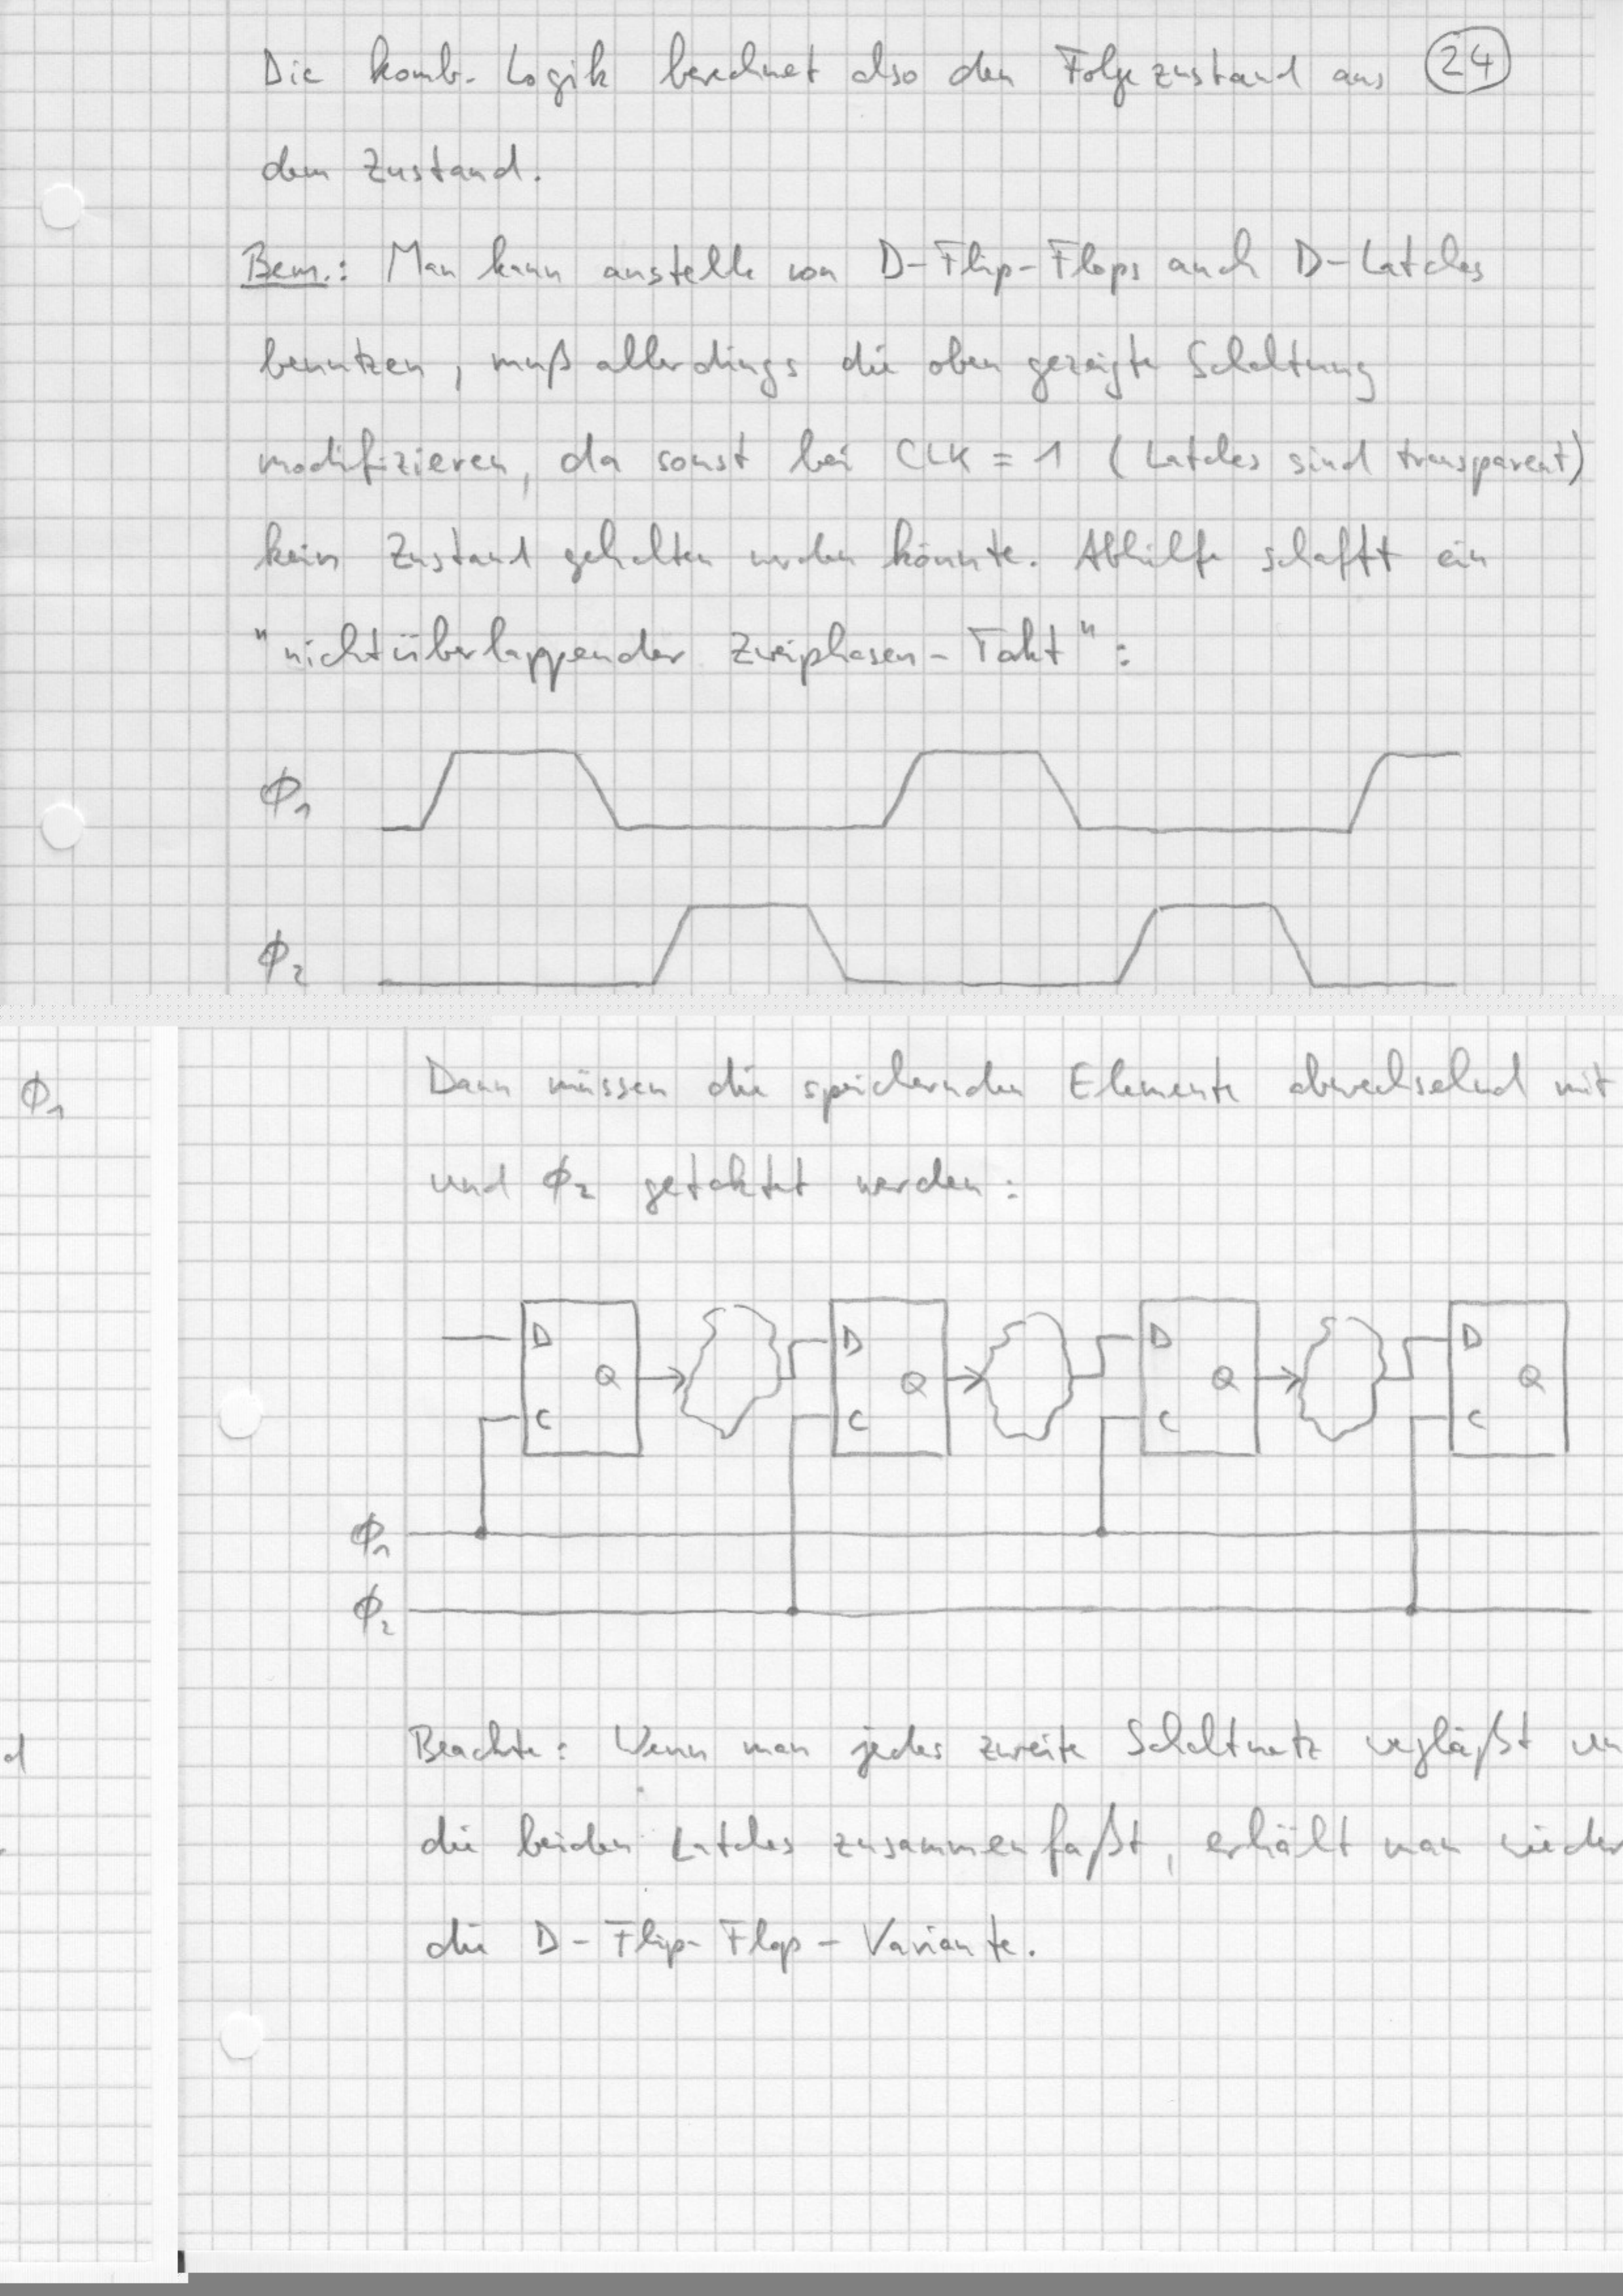 Die komb. Logik berechnet also den Folgezustand aus (24)
dem Zustand.
Bem.: Man kann anstelle von D-Flip-Flops auch D-Latches
benutzen, muß allerdings die oben gezeigte Schaltung
modifizieren, da sonst bei CLK = 1 (Latches sind transparent)
kein Zustand gehalten werden könnte. Abhilfe schafft ein
"nichtüberlappender Zweiphasen-Takt":
ϕ₁
ϕ₂
Dann müssen die speichernden Elemente abwechselnd mit
ϕ₁
und ϕ₂ getaktet werden:
D Q C D Q C D Q C D Q C
ϕ₁
ϕ₂
Beachte: Wenn man jedes zweite Schaltnetz wegläßt un
d
die beiden Latches zusammenfaßt, erhält man wieder
die D-Flip-Flop-Variante.